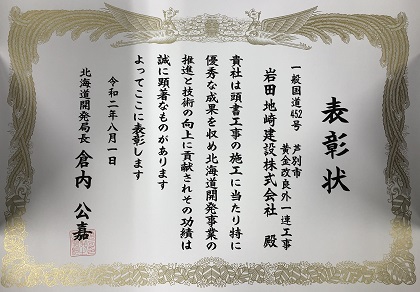 表彰状
一般国道452号 芦別市
黄金改良外一連工事
岩田地崎建設株式会社 殿
貴社は頭書工事の施工に当たり特に
優秀な成果を収め北海道開発事業の
推進と技術の向上に貢献されその功績は
誠に顕著なものがあります
よってここに表彰します
令和二年八月一日
北海道開発局長 倉内 公嘉